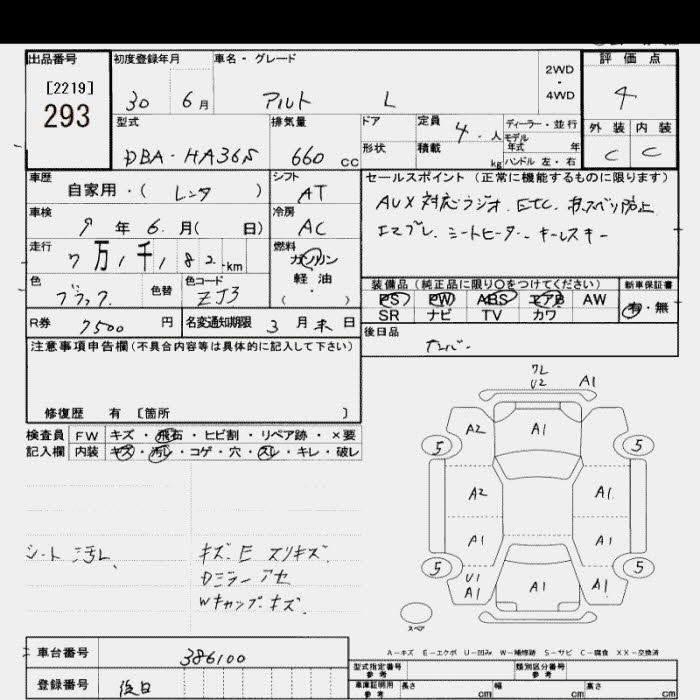 出品番号 初度登録年月 車名・グレード 2WD・4WD 評価点
[2219]
293
30 6月 アルト L 4
型式 排気量 ドア 定員 4.人 ディーラー・並行 外装 内装
モデル年式 年
形状 積載 kg ハンドル 左・右
DBA-HA36S 660cc C C
車歴 シフト セールスポイント (正常に機能するものに限ります)
自家用・( レンタ ) AT AUX対応ラジオ. ETC. 横スベリ防止
車検 冷房 エマブレ. シートヒーター. キーレスキー
9年6.月( 日) AC
走行 燃料
7万1千182-km ガソリン
軽油
( . )
色 色替 色コード 装備品 (純正品に限り○をつけてください) 新車保証書
ブラック. ZJ3 PS PW ABS エアB AW 有・無
SR ナビ TV カワ
R券 7500円 名変通知期限 3月末日 後日品
ナンバー.
注意事項申告欄(不具合内容等は具体的に記入して下さい)
修復歴 有 [箇所 ]
検査員 FW キズ・飛石・ヒビ割・リペア跡・×要
記入欄 内装 キズ・汚レ・コゲ・穴・スレ・キレ・破レ
ワレ
U2 A1
A2 A1
5 5
A2 A1.
A1 A1.
5 5
U1
A1 A1 A1.
スペア
シート汚レ. キズ. E スリキズ.
Dミラーアセ
Wキャップ.キズ.
A-キズ E-エクボ U-凹み W-補修跡 S-サビ C-腐食 XX-交換済
車台番号 386100 型式指定番号 参考 類別区分番号 参考
登録番号 後日 車庫証明用 参考 長さ cm 幅 cm 高さ cm